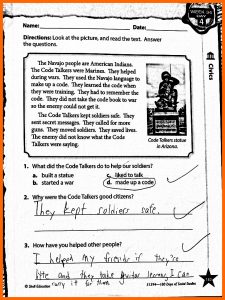 Name:
Date:
WEEK
DAY
4
Directions: Look at the picture, and read the text. Answer
the questions.
Civics
The Navajo people are American Indians.
The Code Talkers were Marines. They helped
during wars. They used the Navajo language to
make up a code. They learned the code when
they were training. They had to remember the
code. They did not take the code book to war
so the enemy could not get it.
The Code Talkers kept soldiers safe. They
sent secret messages. They called for more
guns. They moved soldiers. They saved lives.
The enemy did not know what the Code
Talkers were saying.
Code Talkers statue
in Arizona.
1. What did the Code Talkers do to help our soldiers?
a. built a statue
c. liked to talk
b. started a war
d. made up a code
2. Why were the Code Talkers good citizens?
They kept soldiers safe.
3. How have you helped other people?
I helped my friends if they're
late and they take guitar I can
carry it for them
© Shell Education
180 Days of Social Studies